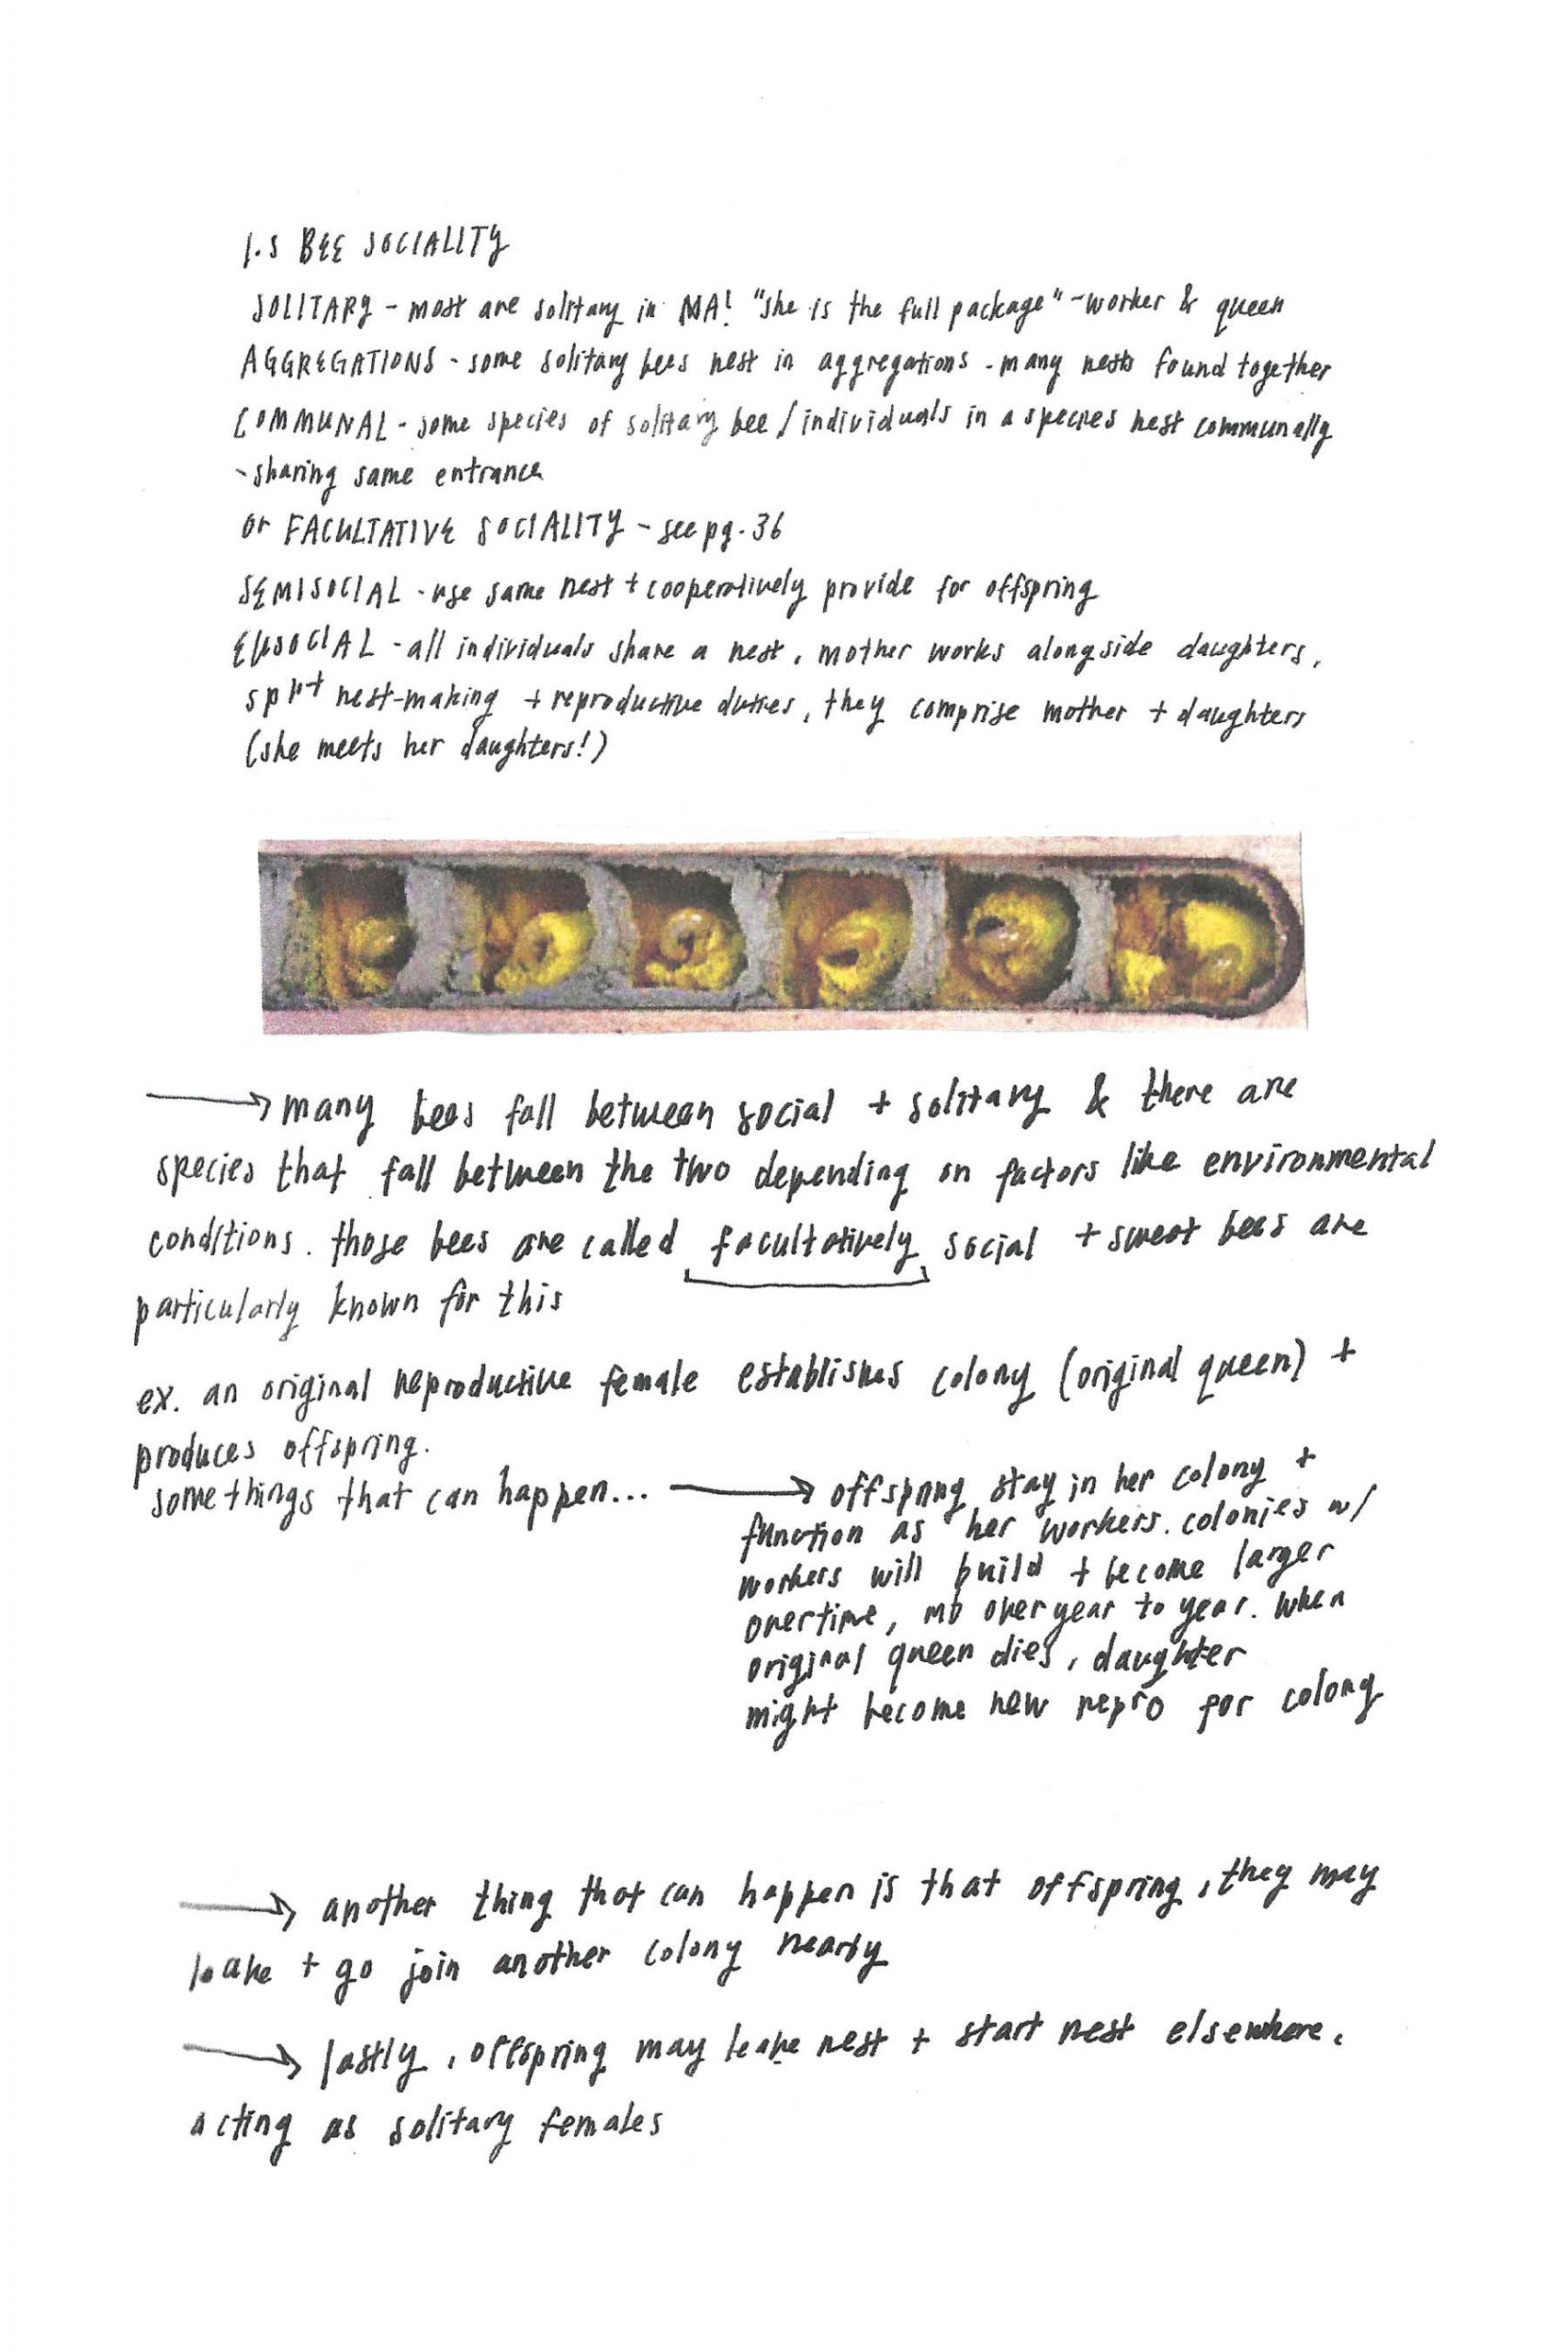 1.5 BEE SOCIALITY
SOLITARY - most are solitary in MA! "she is the full package" - worker & queen
AGGREGATIONS - some solitary bees nest in aggregations - many nests found together
COMMUNAL - some species of solitary bee / individuals in a species nest communally
- sharing same entrance
or FACULTATIVE SOCIALITY - see pg. 36
SEMISOCIAL - use same nest + cooperatively provide for offspring
EUSOCIAL - all individuals share a nest, mother works alongside daughters,
split nest-making + reproductive duties, they comprise mother + daughters
(she meets her daughters!)
→ many bees fall between social + solitary & there are
species that fall between the two depending on factors like environmental
conditions. those bees are called facultatively social + sweat bees are
particularly known for this
ex. an original reproductive female establishes colony (original queen) +
produces offspring.
some things that can happen... → offspring stay in her colony +
function as her workers. colonies w/
workers will build + become larger
overtime, over year to year. when
original queen dies, daughter
might become new repro for colony
→ another thing that can happen is that offspring, they may
leave + go join another colony nearby
→ lastly, offspring may leave nest + start nest elsewhere,
acting as solitary females